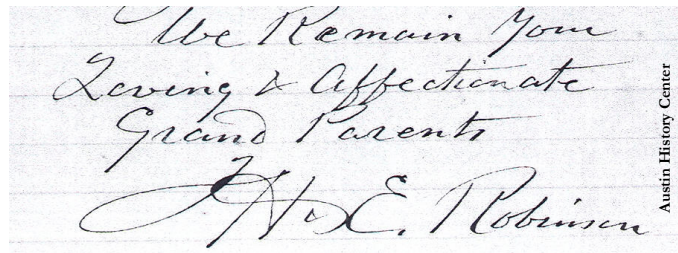 We Remain Your
Loving & Affectionate
Grand Parents
J H & E. Robinson
Austin History Center